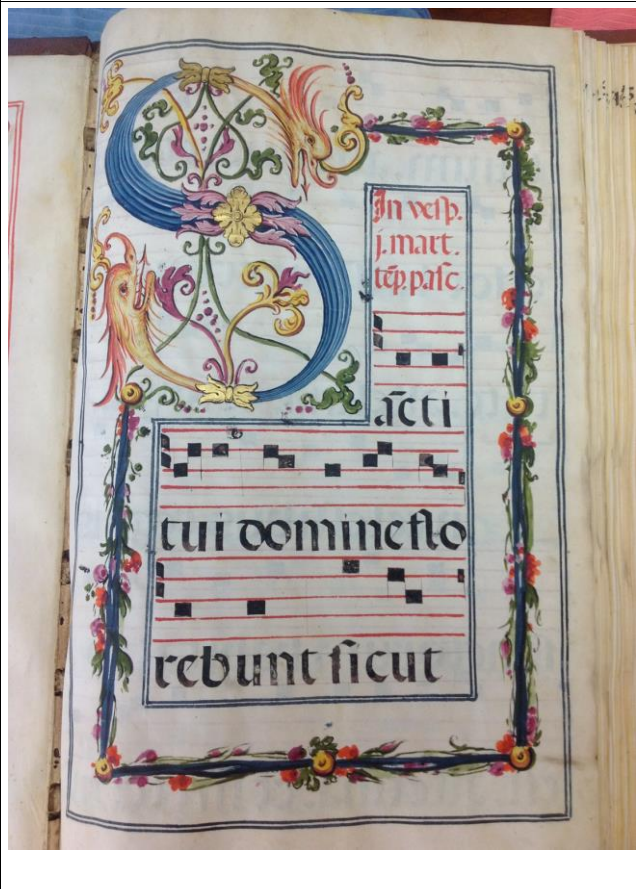 In vesp.
j. mart.
tēp. pasc.
Sācti
tui domine flo
rebunt sicut